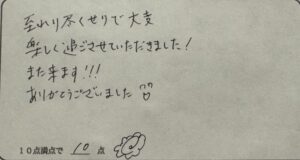 至れり尽くせりで大変
楽しく過ごさせていただきました！
また来ます!!!
ありがとうございました
10点満点で 10 点